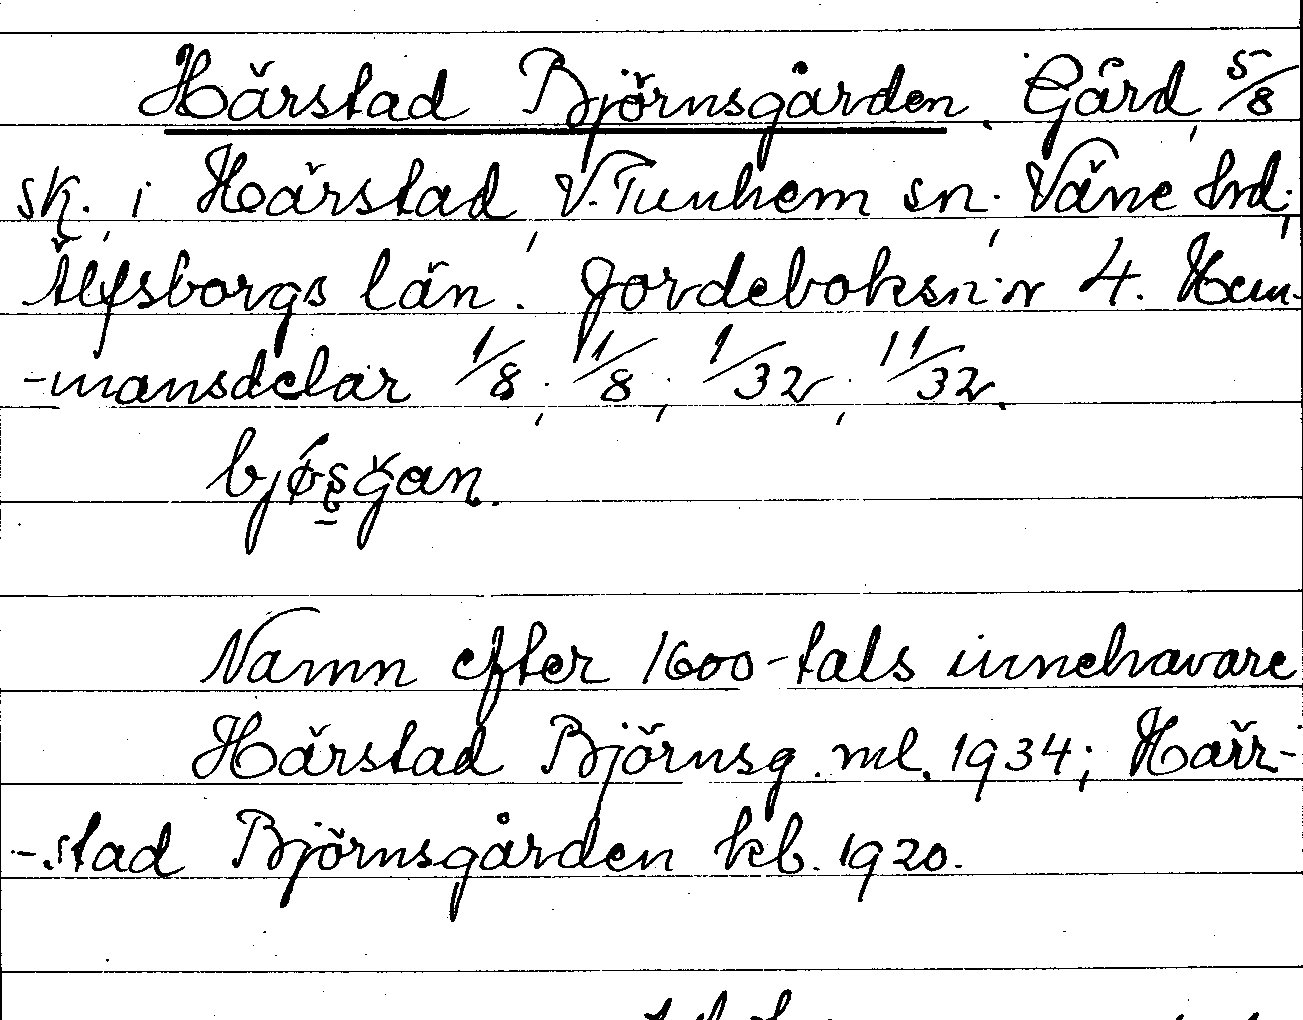 Härstad Björnsgården. Gård, 5/8
sk., i Härstad, V. Tunhem sn., Väne hrd.,
Älfsborgs län. Jordeboksn:r 4. Hem-
-mansdelar 1/8, 1/8, 1/32, 11/32.
Namn efter 1600-tals innehavare
Härstad Björnsg. ml. 1934; Härr-
-stad Björnsgården kb. 1920.